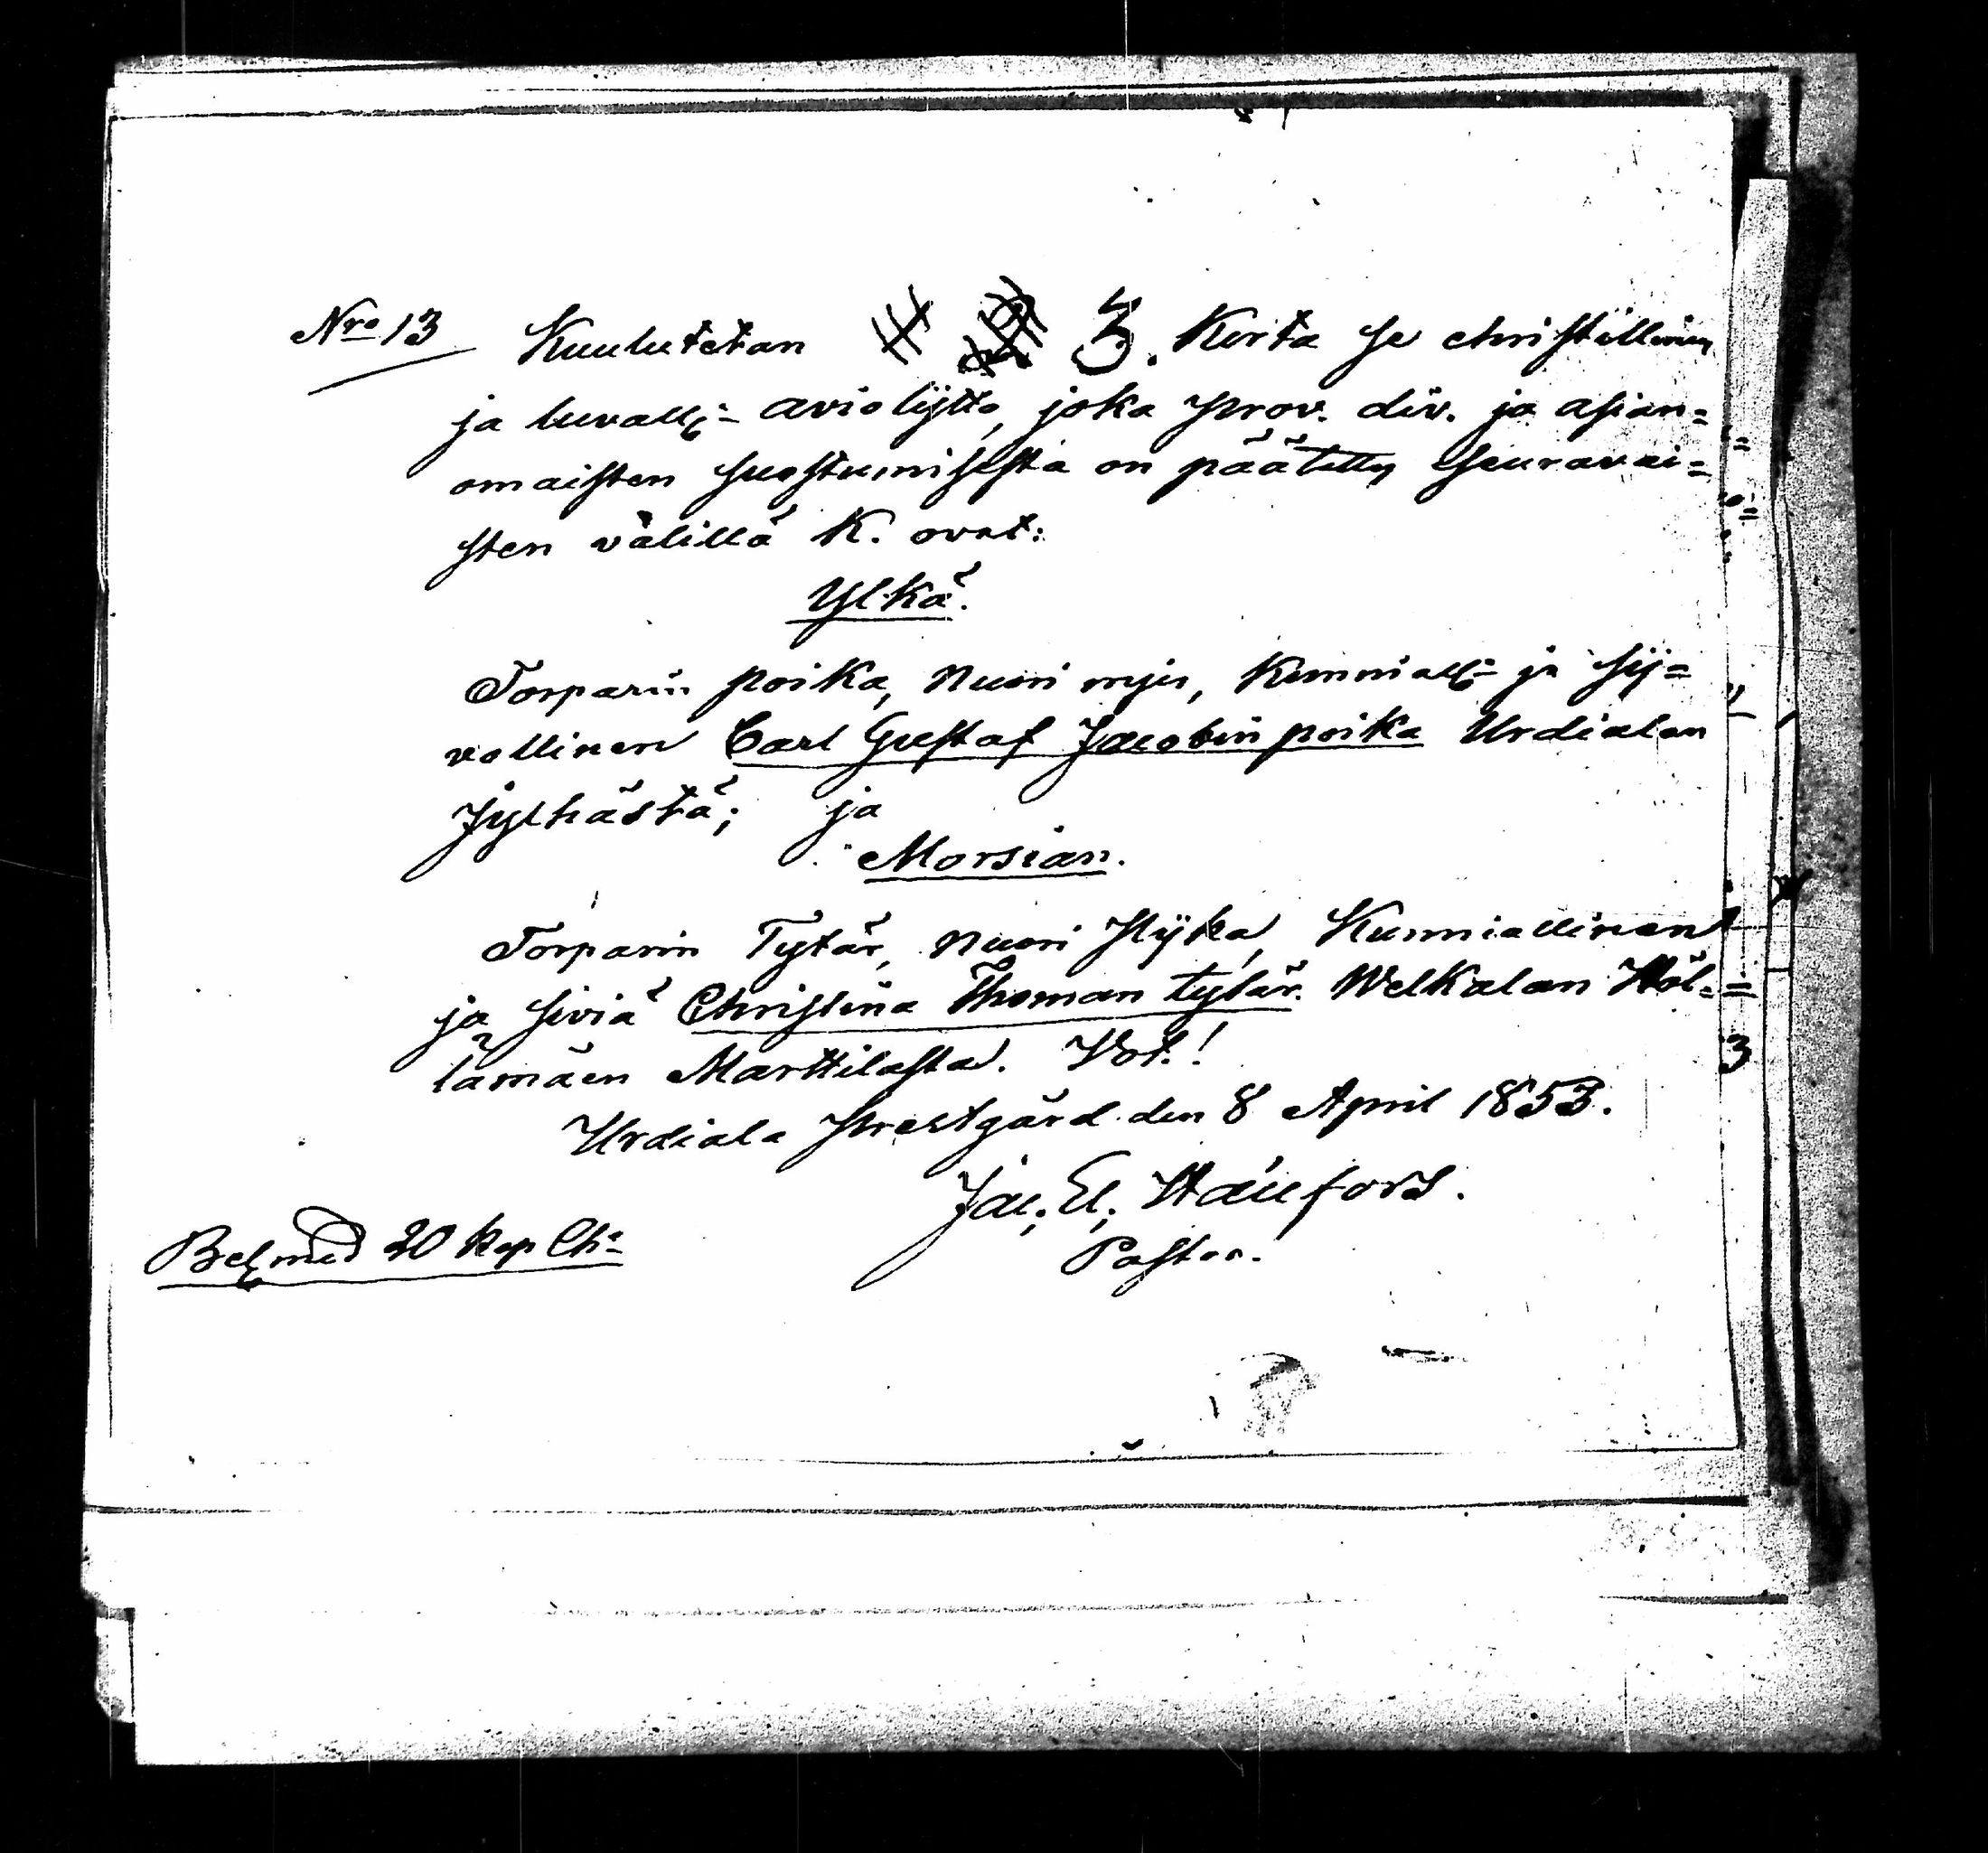 Nro 13 Kuulutetan 3. Kerta se christillinen
ja luvall:= aviolijtto, joka prov. div. ja asian=
omaisten suostumisesta on päätetty seuravai=
sten välillä K. ovat:
Ylkä.
Torparin poika, nuori mies, kunniall:= ja sij=
vollinen Carl Gustaf Jacobin poika Urdialan
Jylhästä; ja
Morsian.
Torparin Tytär, nuori Pijka, Kunniallinen
ja siviä Christina Thoman tytär Welkalan Höl=
lämäen Marttilasta. Vot.!
Urdiala Prestgård den 8 April 1853.
Jac. El.
Pastor.
Bet. med 20 kop Chr